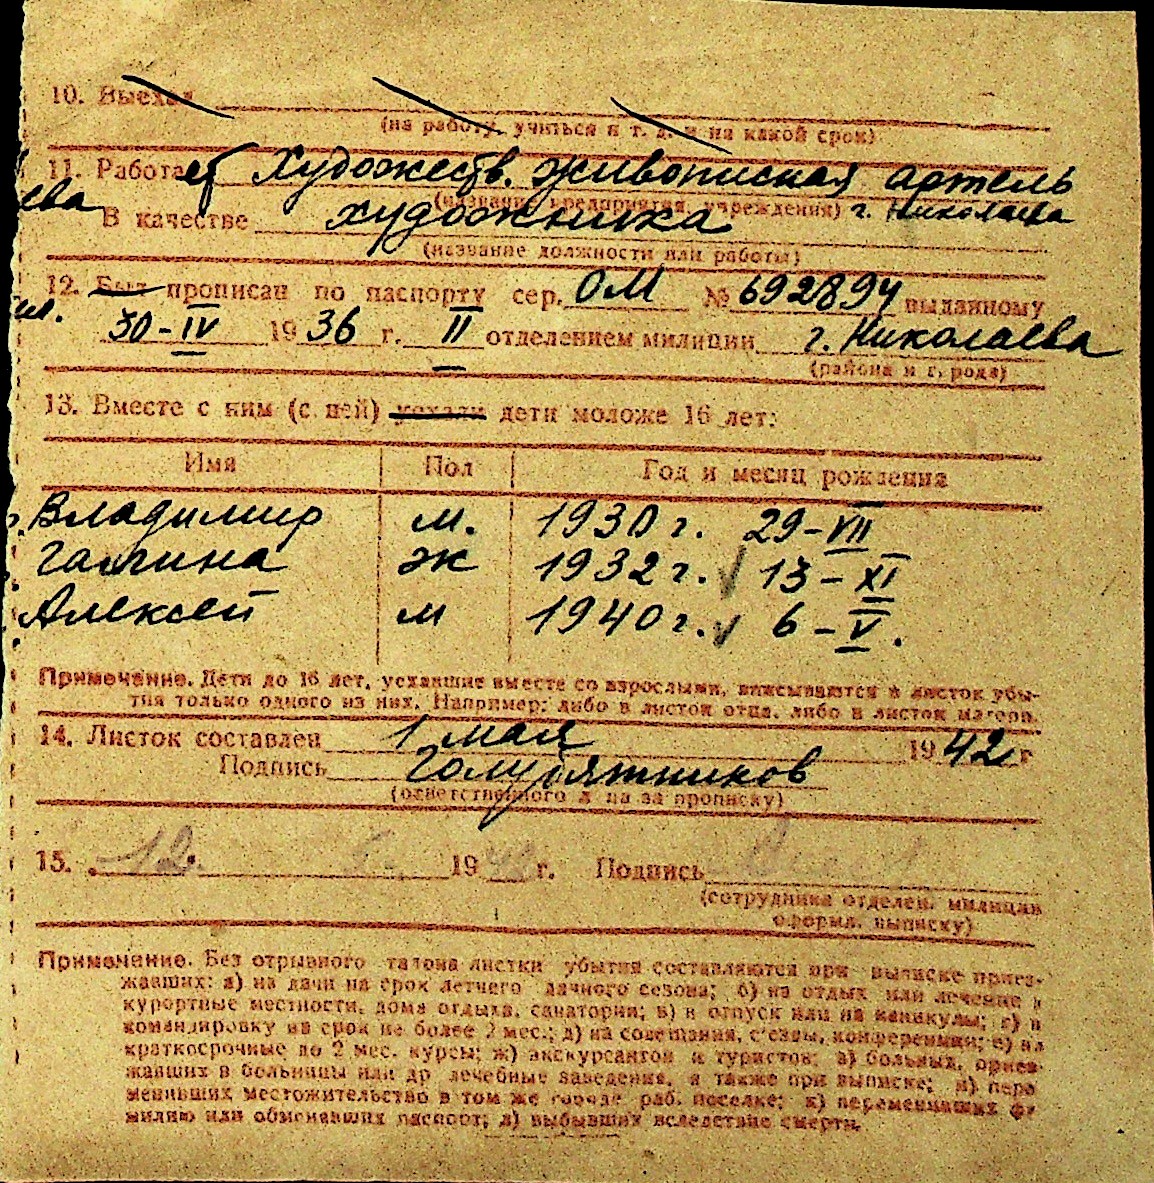 10. Выехал
(на работу, учиться и т. д. и на какой срок)
11. Работает Художеств. живописная артель
(название предприятия, учреждения) г. Николаева
ева
В качестве художника
(название должности или работы)
12. Был прописан по паспорту сер. ОМ № 692894 выданному
30-IV 1936 г. II отделением милиции г. Николаева
(района и города)
13. Вместе с ним (с ней) уехали дети моложе 16 лет:
Имя Пол Год и месяц рождения
Владимир м. 1930 г. 29-VII
Галина ж 1932 г. 13-XI
Алексей м 1940 г. 6-V.
Примечание. Дети до 16 лет, уехавшие вместе со взрослыми, вписываются в листок убы-
тия только одного из них. Например: либо в листок отца, либо в листок матери.
14. Листок составлен 1 мая 1942 г
Подпись Голубятников
(ответственного л ца за прописку)
15. 12. 19 г. Подпись
(сотрудника отделен. милиции
оформл. выписку)
Примечание. Без отрывного талона листки убытия составляются при выписке приез-
жавших: а) на дачи на срок летнего дачного сезона; б) на отдых или лечение в
курортные местности, дома отдыха, санатории; в) в отпуск или на каникулы; г) в
командировку на срок не более 2 мес.; д) на совещания, с'езды, конференции; е) на
краткосрочные до 2 мес. курсы; ж) экскурсантов и туристов; з) больных, приез-
жавших в больницы или др лечебные заведения, а также при выписке; и) пере
менивших местожительство в том же городе раб. поселке; к) переменивших фа
милию или обменявших паспорт; л) выбывших вследствие смерти.